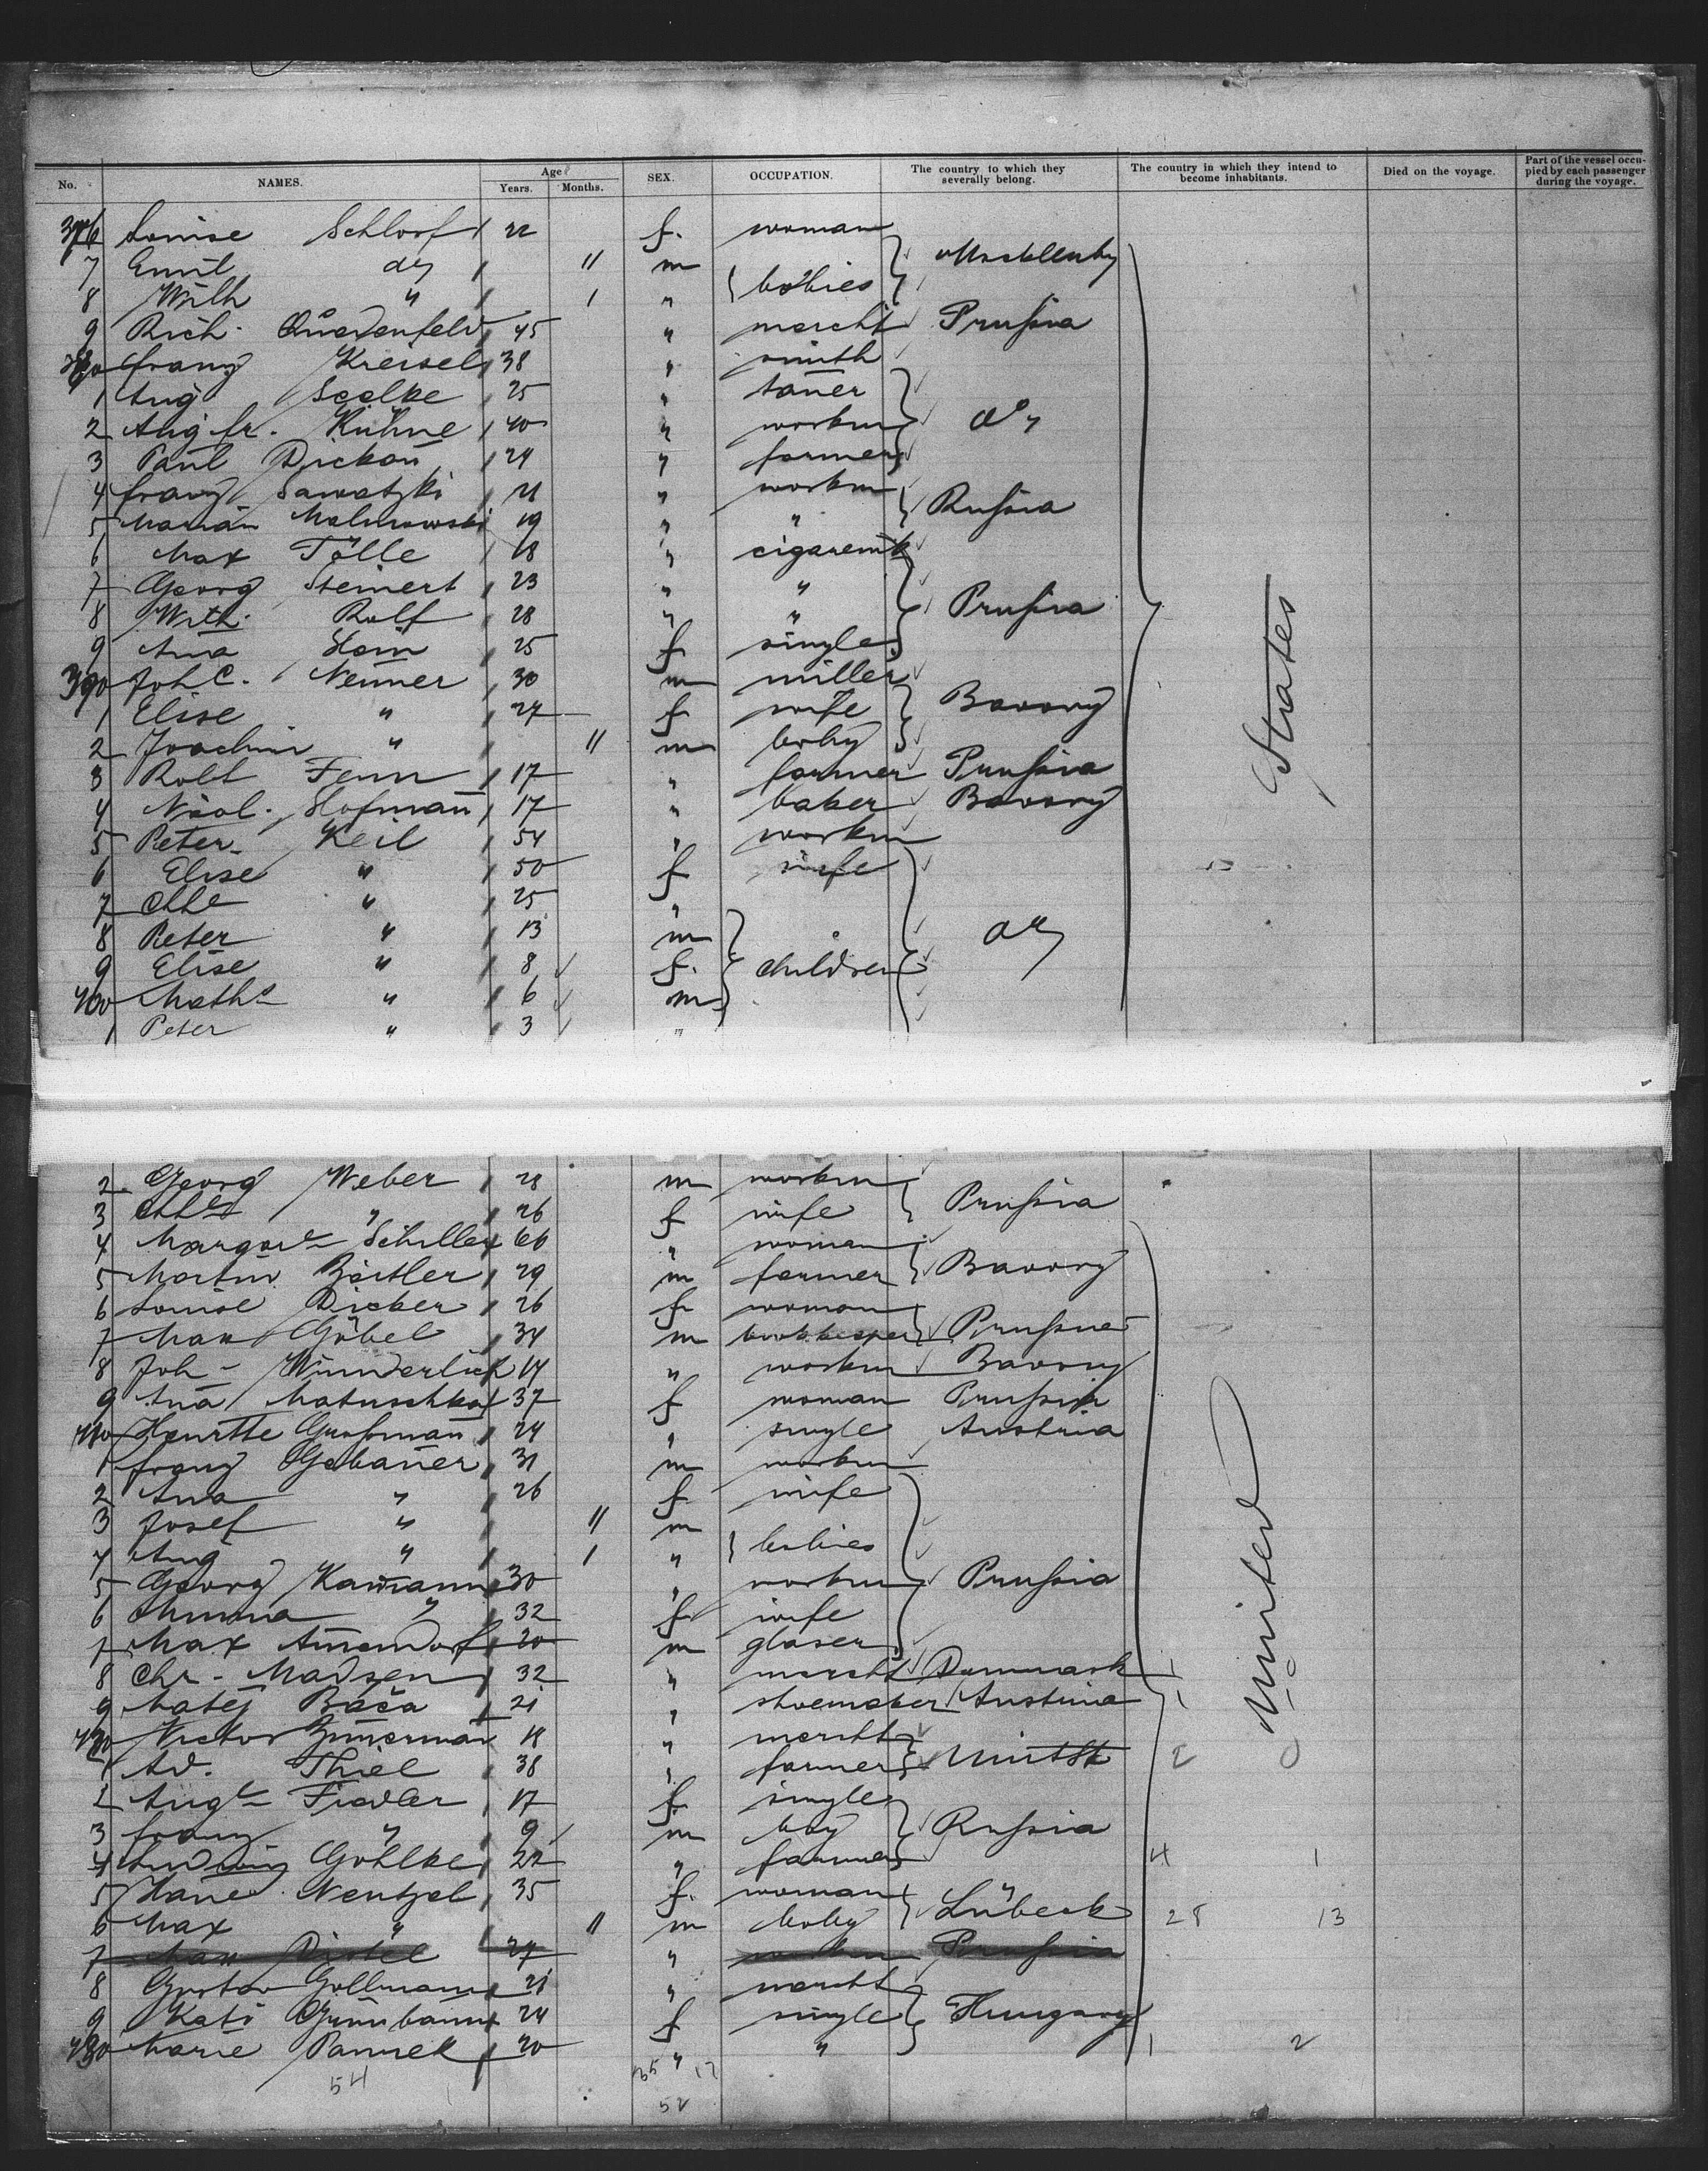 No. NAMES. Age Years. Months. SEX. OCCUPATION. The country to which they severally belong. The country in which they intend to become inhabitants. Died on the voyage. Part of the vessel occupied by each passenger during the voyage.
376 Louise Schlorf 22 f. woman
7 Emil do 11 m Mecklenbg
8 Wilh " 1 " babies
9 Rich. Quadenfeld 45 " marcht Prussia
380 Franz Kreisel 38 " smith
1 Aug Seelke 25 " taner
2 Aug. fr. Kühne 40 " workm do
3 Paul Dickon 24 " farmer
4 Franz Sawatzki 21 " workm
5 Marian Malinowski 19 " " Russia
6 Max Tölle 18 " cigaremk
7 Georg Steinert 23 " "
8 Wilh. Rolf 28 " " Prussia
9 Ana Horn 25 f single
390 Joh C. Neuner 30 m miller
1 Elise " 27 f wife Bavary
2 Joachim " 11 m baby
3 Robt Fenn 17 " farmer Prussia
4 Nicol. Hofman 17 " baker Bavary
5 Peter Keil 54 " workm
6 Elise " 50 f wife
7 " 25 "
8 Peter " 13 m do
9 Elise " 8 f. children
400 Maths " 6 m
1 Peter " 3 "
States
2 Georg Weber 28 m workm
3 " 26 f wife Prussia
4 Margar Schiller 66 " woman
5 Martin Bästler 29 m farmer Bavary
6 Louise Dicker 26 f woman
7 Max Göbel 34 m bookkeeper Prussia
8 Joh Wunderlich 14 " workm Bavary
9 Ana Matuschka 37 f woman Prussia
410 Henrtte Grossman 24 " single Austria
1 Franz Gebauer 31 m workm
2 Ana " 26 f wife
3 Josef " 11 m
4 Aug " 1 " babies
5 Georg Kamann 30 " workm Prussia
6 " 32 f wife
7 Max Amendorf 20 m glaser
8 Chr. Madsen 32 " marcht Danmark 1
9 Matej Bača 21 " shoemaker Austria 1
420 Victor Zimerman 18 " marcht
1 Ad. Thiel 38 " farmer Unit St 2
2 Aug Fiedler 17 f single
3 Franz " 9 m boy Russia
4 Ludwig Gohlke 22 " farmer 4 1
5 Hane Nentzel 35 f. woman Lübeck
6 Max " 11 m baby 28 13
7 27 " workm Prussia
8 Gustav Gollmann 21 " marcht
9 Kati Grünbaum 24 f single Hungary
430 Marie Pannek 20 " " 1 2
United
54 35 17
52